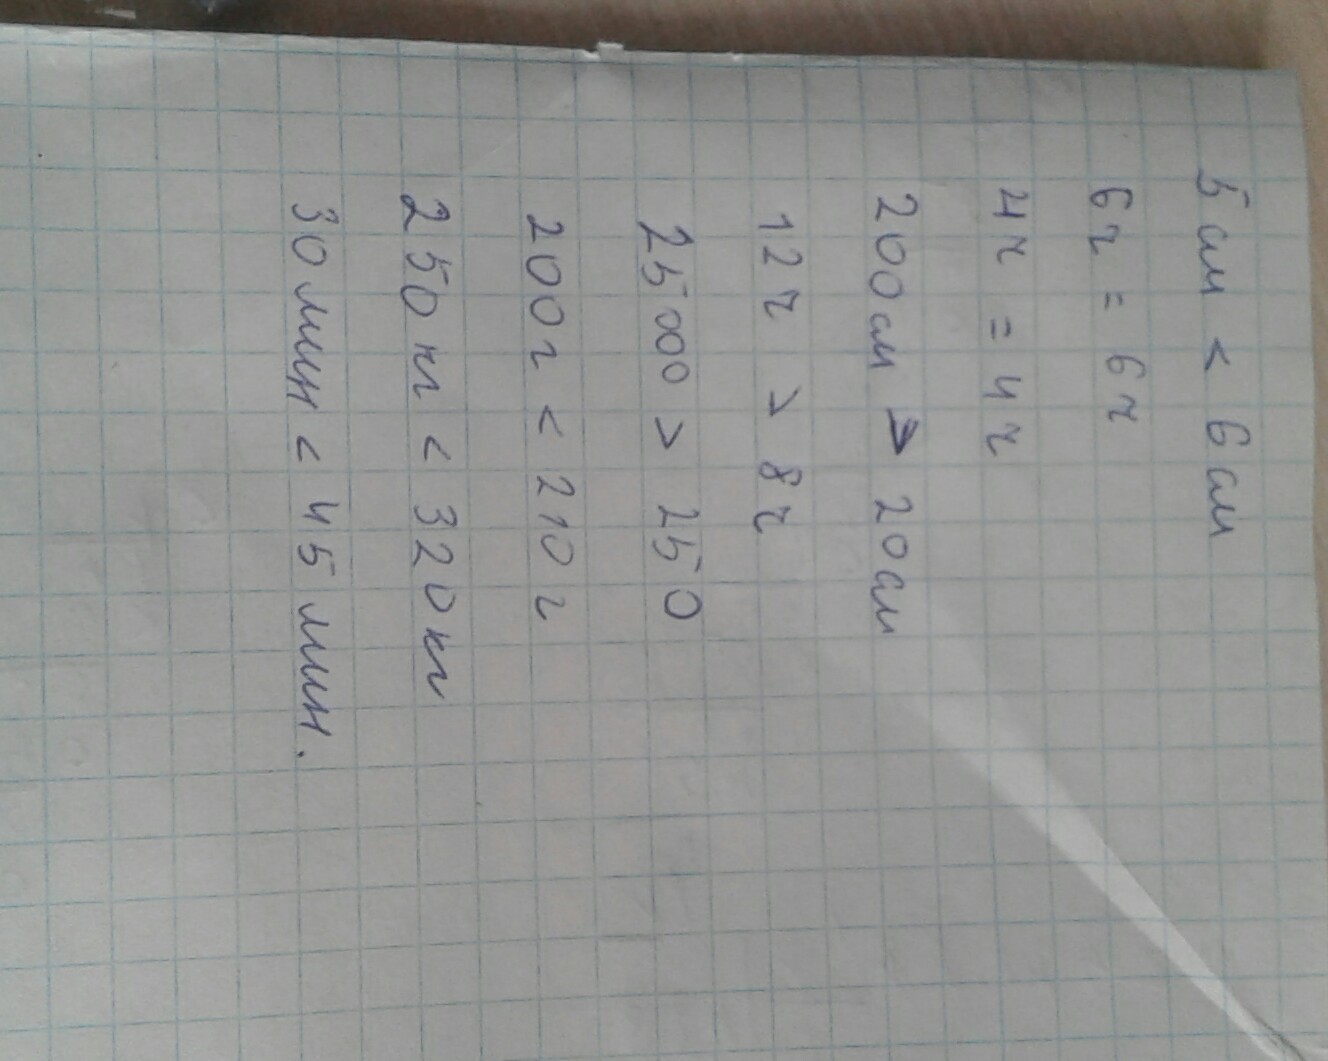 5 см < 6 см
6ч = 6ч
4ч = 4ч
200см > 20см
12ч > 8ч
25000 > 250
200г < 210г
250кг < 320кг
30мин < 45мин.